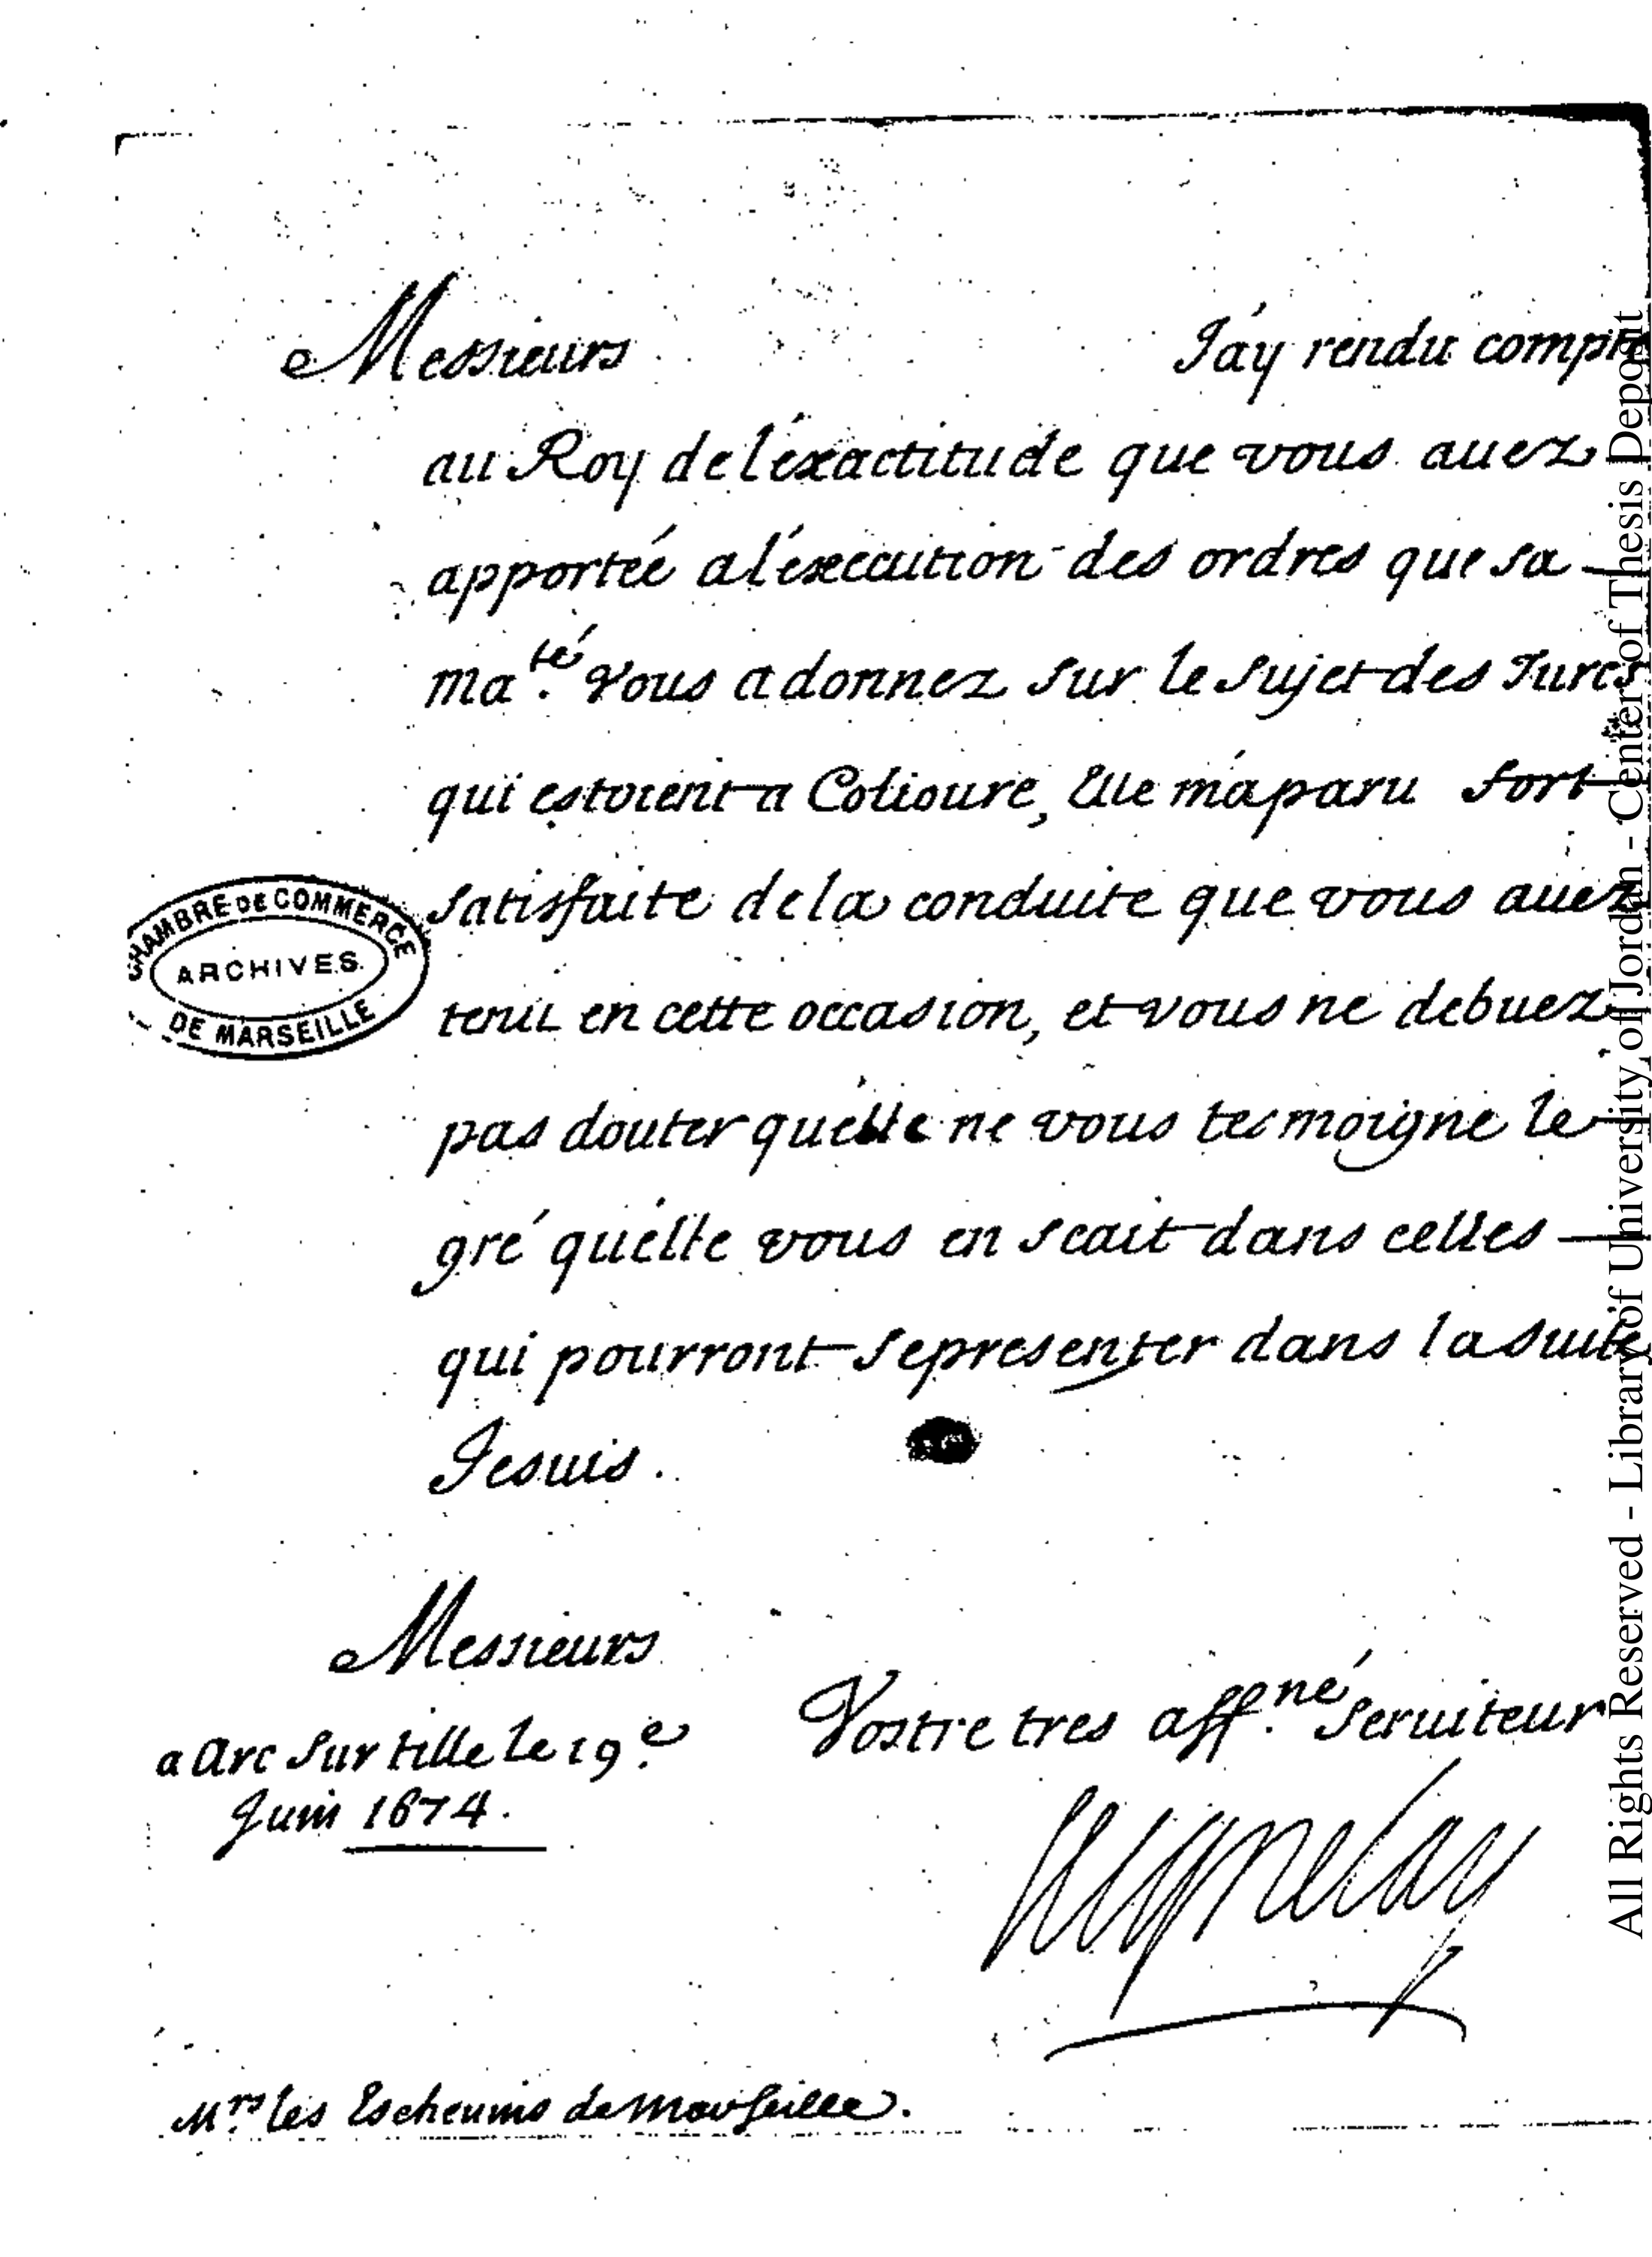 Messieurs J'ay rendu compte
au Roy de l'exactitude que vous auez
apportée a l'execution des ordres que sa
ma.té vous a donnez sur le sujet des Turcs
qui estoient a Colioure, Elle m'a paru fort
satisfaite de la conduite que vous auez
tenu en cette occasion, et vous ne debuez
pas douter qu'elle ne vous tesmoigne le
gré qu'elle vous en scait dans celles
qui pourront se presenter dans la suite
Je suis.
Messieurs
Vostre tres aff.né seruiteur
a Arc sur tille le 19.e
Juin 1674.
Seignelay
M.rs les Escheuins de Marseille.
CHAMBRE DE COMMERCE
ARCHIVES
DE MARSEILLE
All Rights Reserved - Library of University of Jordan - Center of Thesis Deposit